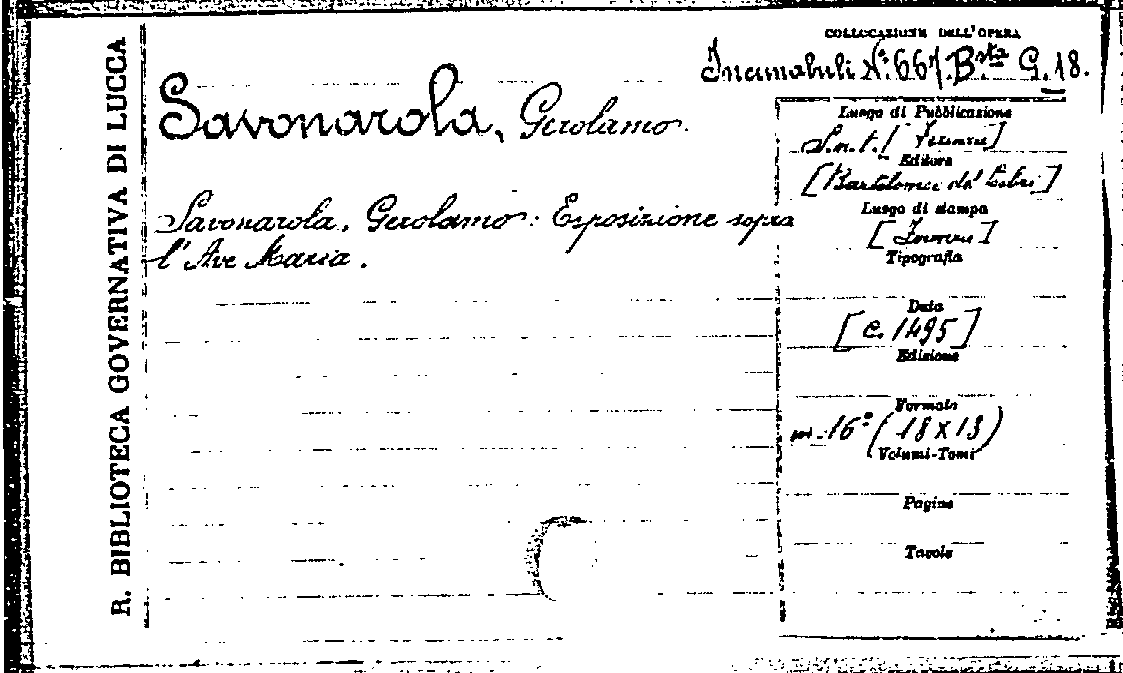 R. BIBLIOTECA GOVERNATIVA DI LUCCA
COLLOCAZIONE DELL'OPERA
Incunabuli N.° 667. B.sta G.18.
Savonarola, Gerolamo.
Savonarola, Gerolamo: Esposizione sopra
l'Ave Maria.
Luogo di Pubblicazione
S.n.t. [Firenze]
Editore
[Bartolomeo de' Libri]
Luogo di stampa
[Firenze]
Tipografia
Data
[c. 1495]
Edizione
Formato
in-16° (18x13)
Volumi-Tomi
Pagine
Tavole